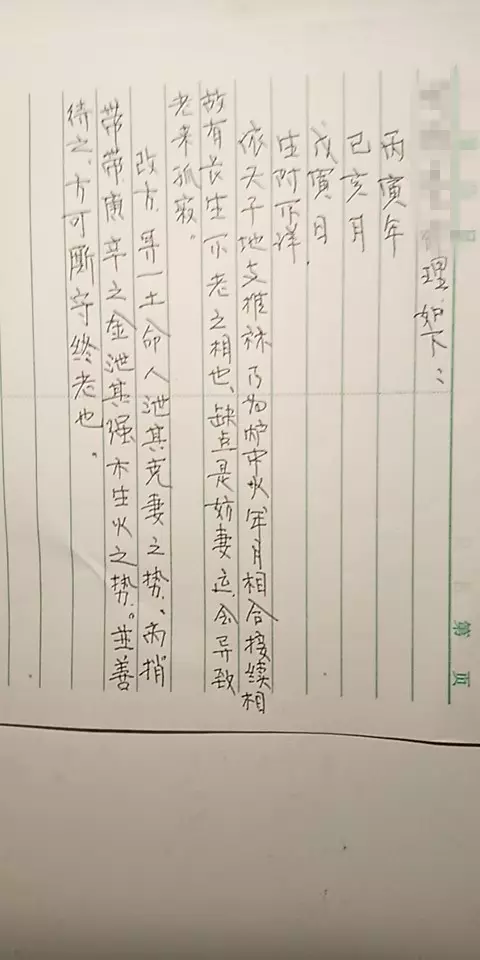 第 页
理如下：
丙寅年
已亥月
戊寅日
生时不详.
依天干地支推祘乃为炉中火年月相合接续相
故有长生不老之相也、缺点是妨妻运.会导致
老来孤寂。
改方.寻一土命人泄其克妻之势、两捎
带带庚辛之金泄其强木生火之势。並善
待之、方可断守终老也。